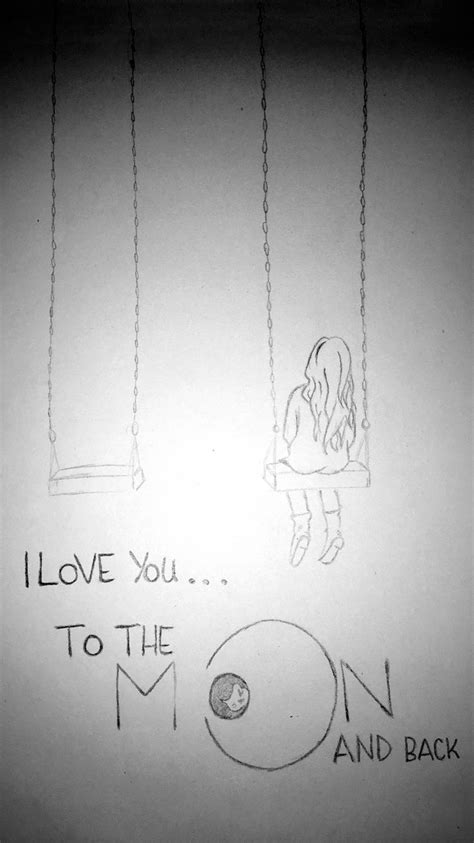 I LOVE YOU...
TO THE
MOON
AND BACK